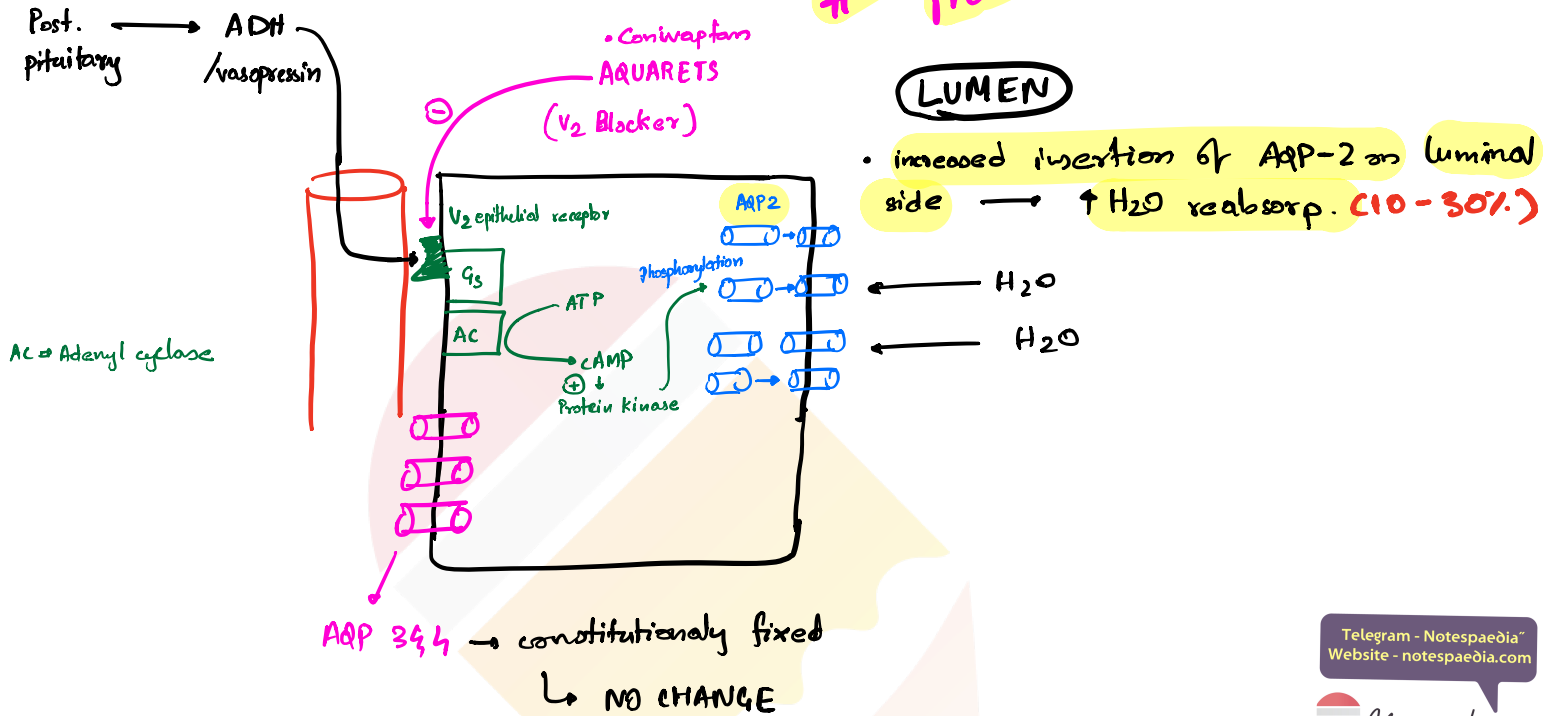 Post. → ADH
pituitary /vasopressin
• Conivaptan
AQUARETS
(V2 Blocker)
LUMEN
• increased insertion of AQP-2 on luminal
side → ↑ H2O reabsorp. (10-30%)
V2 epithelial receptor
AQP2
Gs
Phosphorylation
ATP
AC
cAMP
+ ↓
Protein kinase
H2O
H2O
AC ⇒ Adenyl cyclase
AQP 3&4 → constitutionaly fixed
↳ NO CHANGE
Telegram - Notespaedia"
Website - notespaedia.com